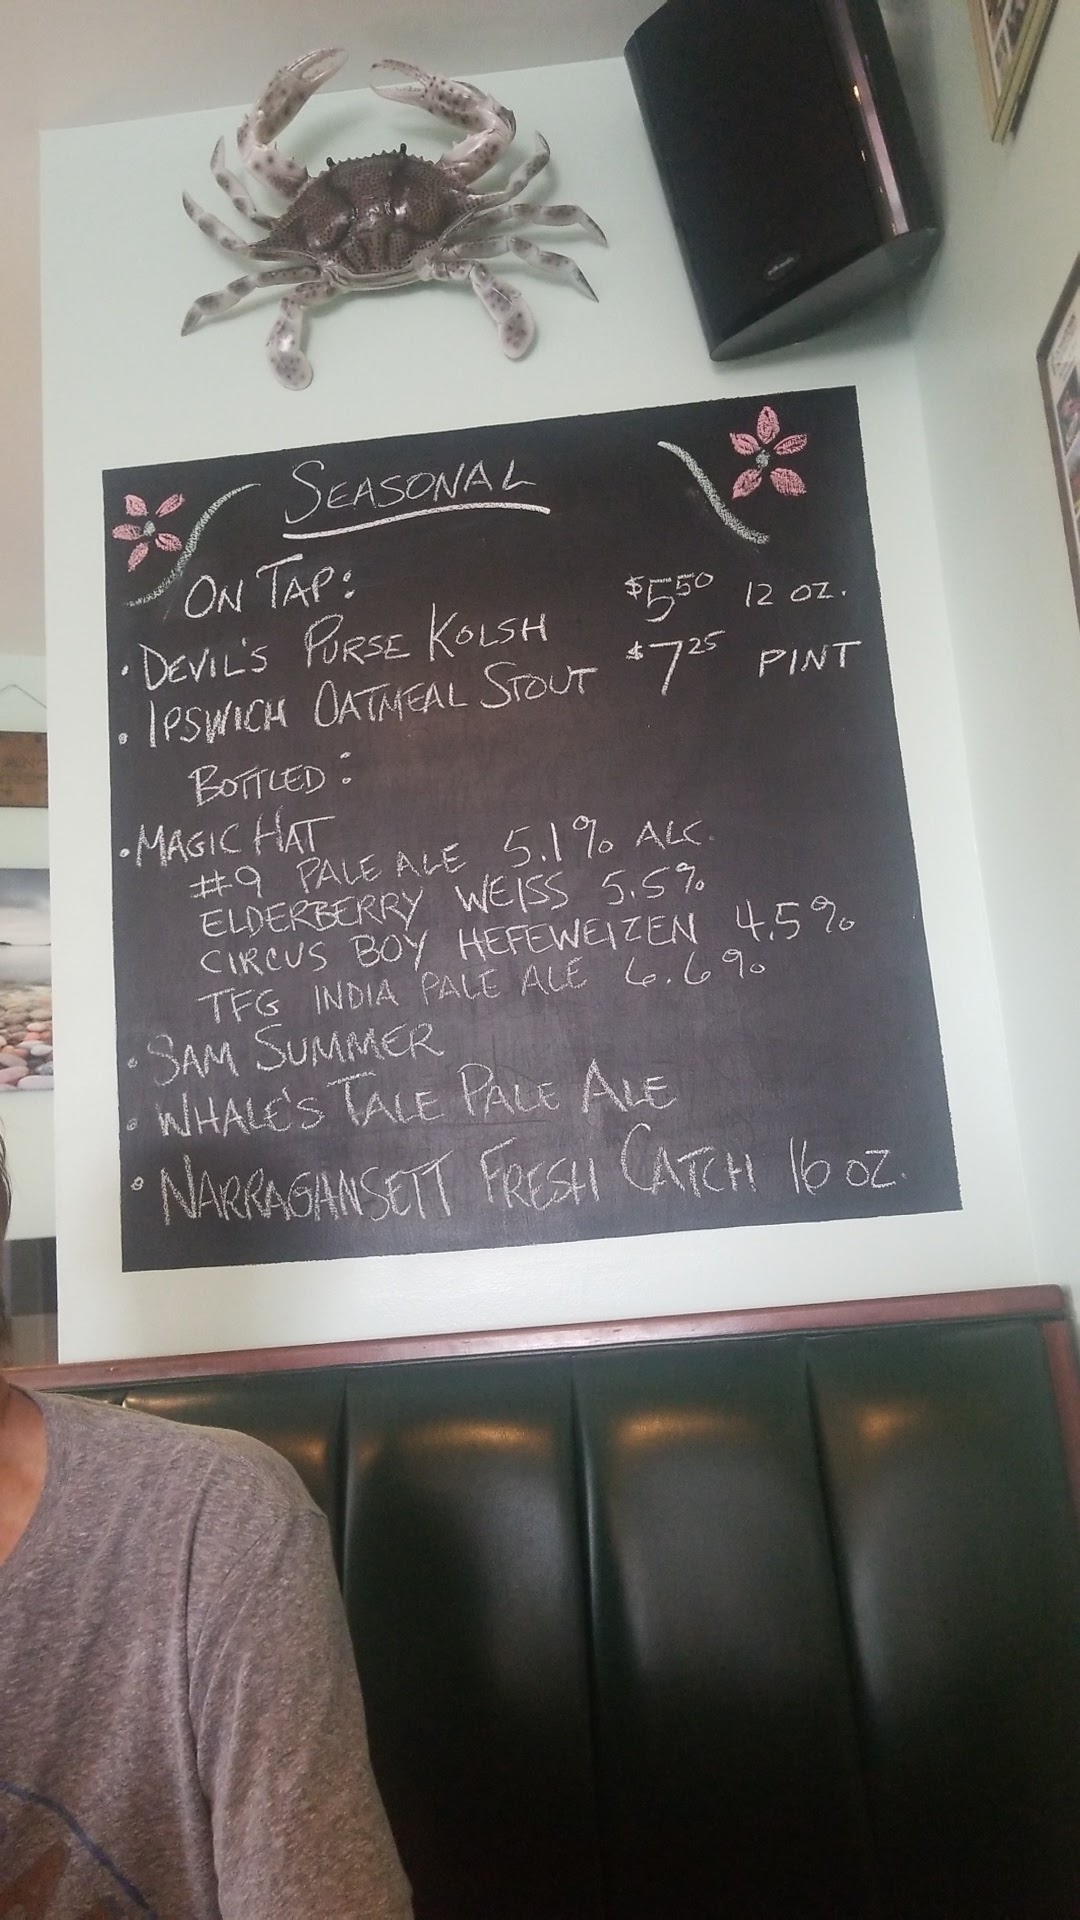 SEASONAL
ON TAP: $5.50 12 OZ.
• DEVIL'S PURSE KOLSH $7.25 PINT
• IPSWICH OATMEAL STOUT
BOTTLED:
• MAGIC HAT
#9 PALE ALE 5.1% ALC.
ELDERBERRY WEISS 5.5%
CIRCUS BOY HEFEWEIZEN 4.5%
TFG INDIA PALE ALE 6.6%
• SAM SUMMER
• WHALE'S TALE PALE ALE
• NARRAGANSETT FRESH CATCH 16 OZ.